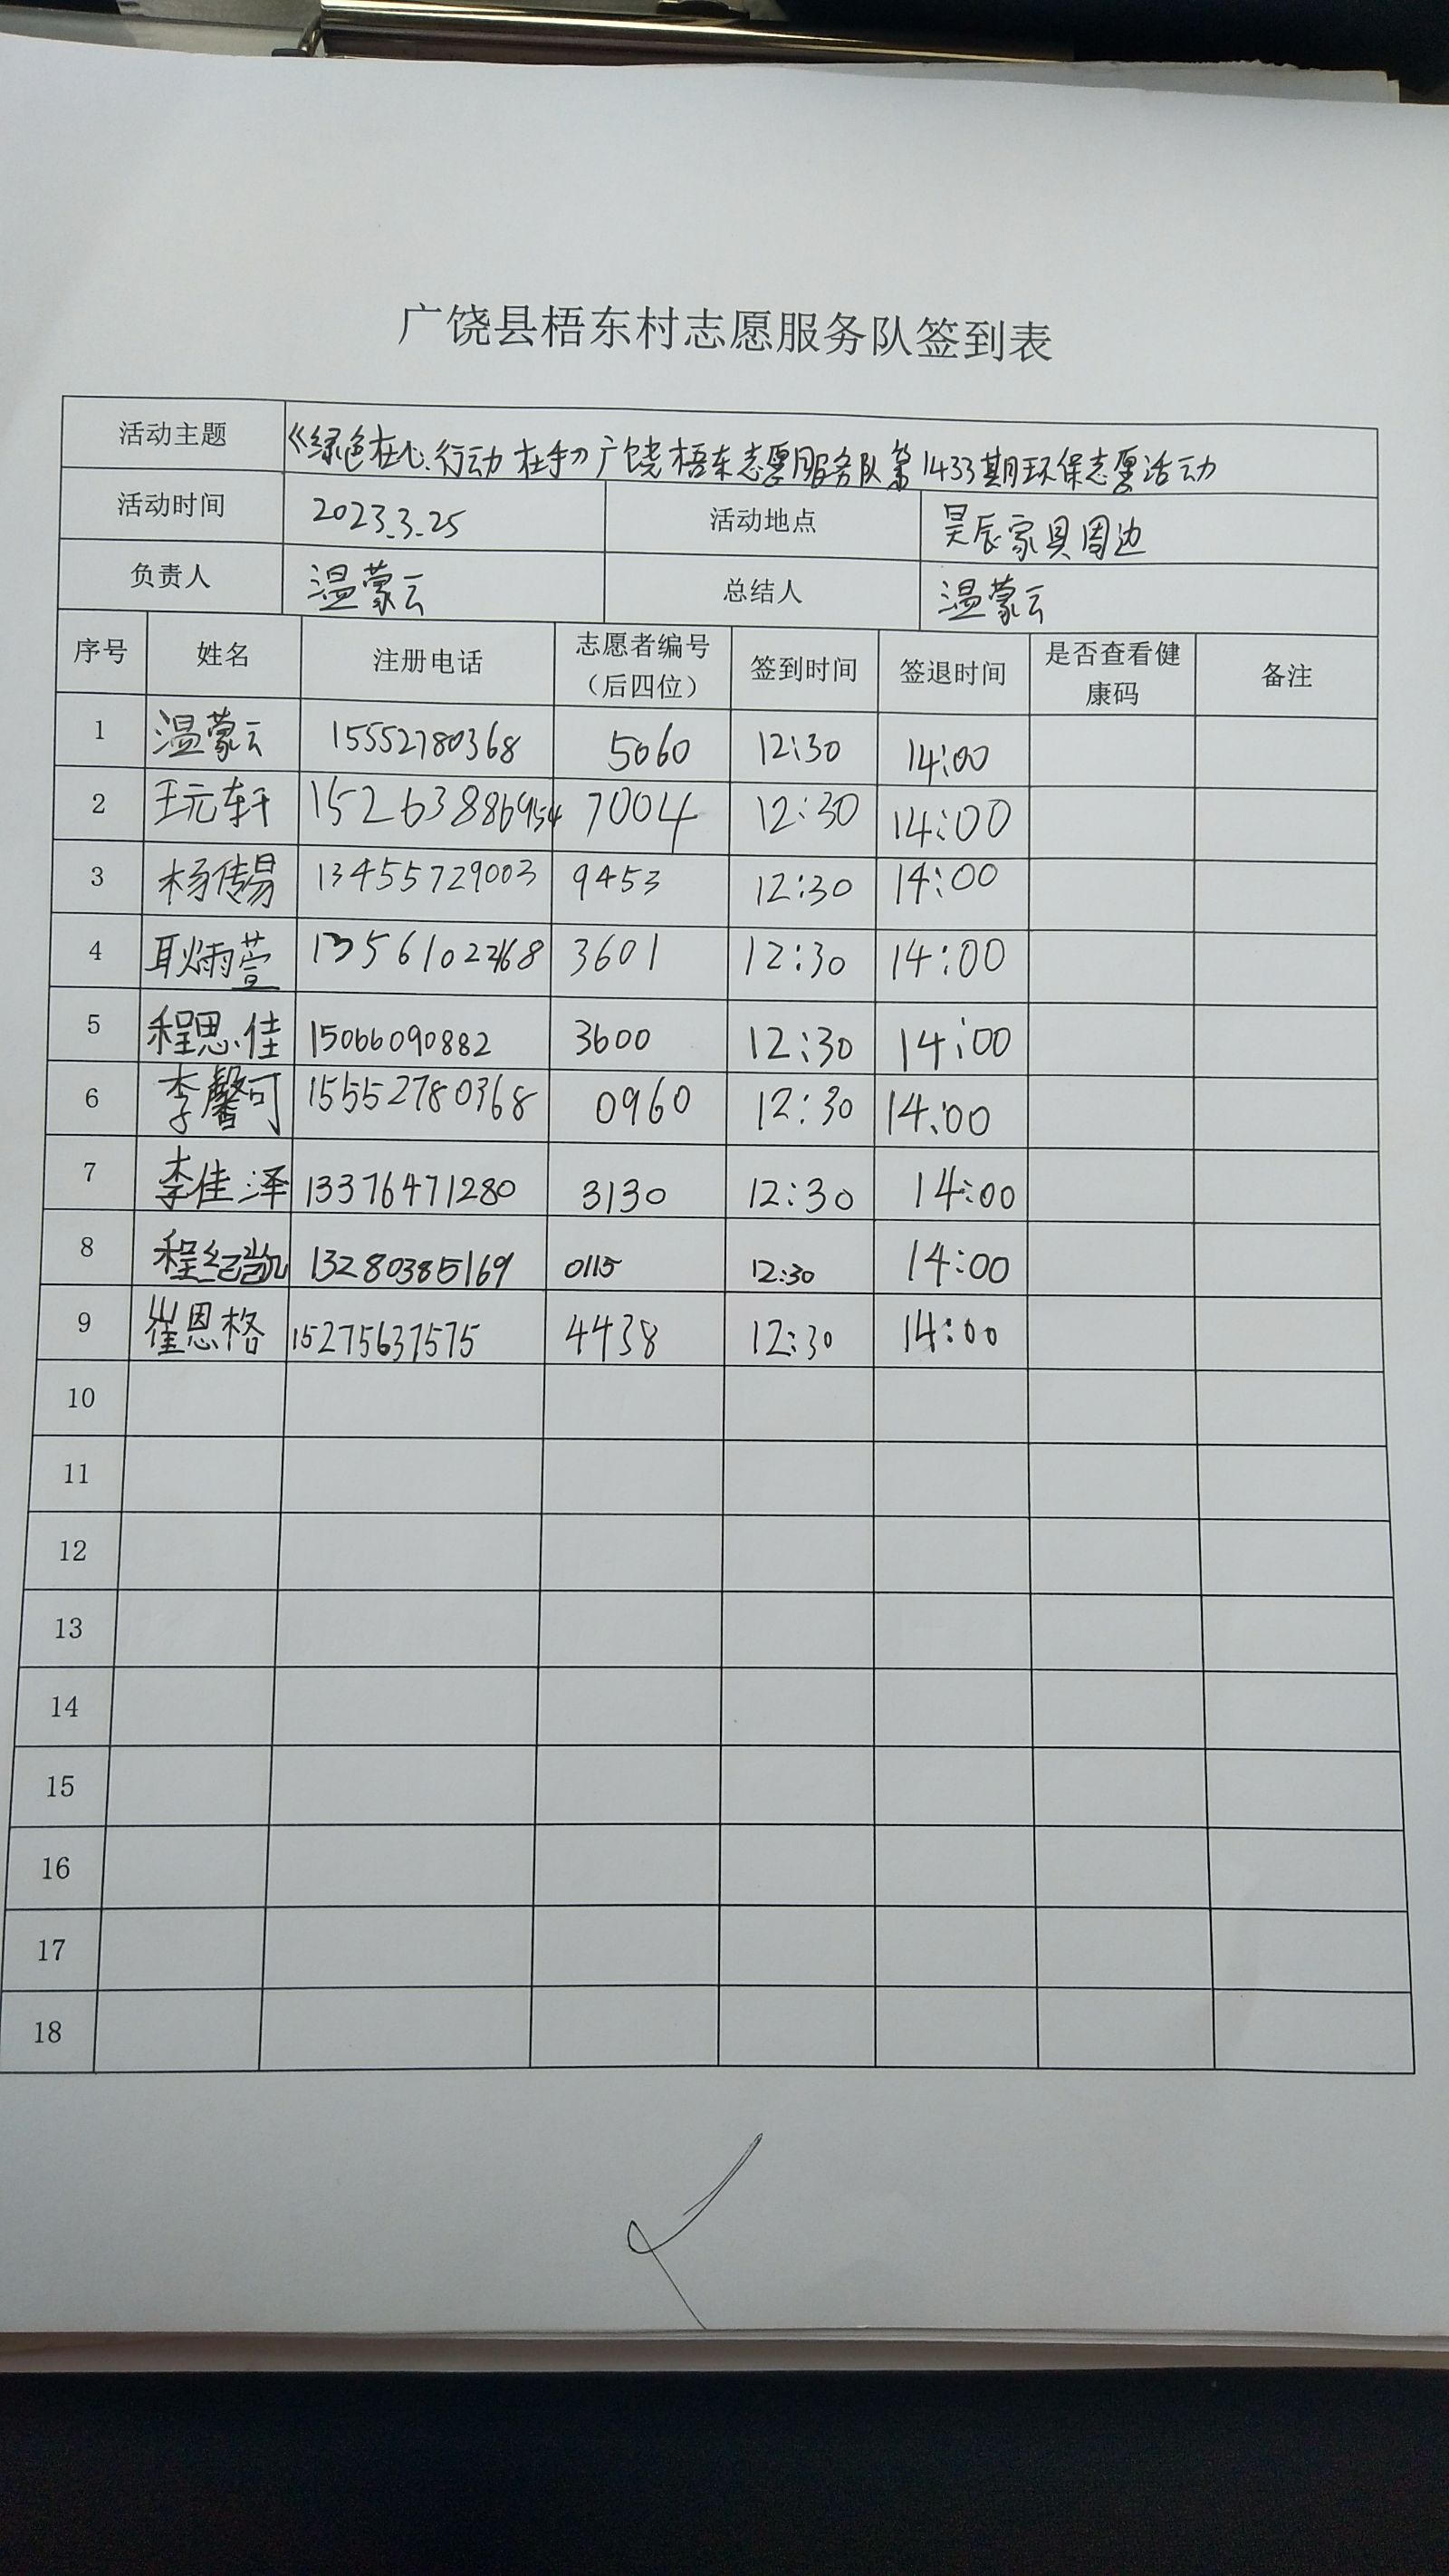 广饶县梧东村志愿服务队签到表
活动主题 《绿色在心、行动在手》广饶梧东志愿服务队第1433期环保志愿活动
活动时间 2023.3.25 活动地点 昊辰家具周边
负责人 温蒙云 总结人 温蒙云
序号 姓名 注册电话 志愿者编号（后四位） 签到时间 签退时间 是否查看健康码 备注
1 温蒙云 15552780368 5060 12:30 14:00
2 王元轩 15263886954 7004 12:30 14:00
3 杨传易 13455729003 9453 12:30 14:00
4 耿雨萱 3601 12:30 14:00
5 程思佳 15066090882 3600 12:30 14:00
6 李馨可 15552780368 0960 12:30 14:00
7 李佳泽 13376471280 3130 12:30 14:00
8 程纪凯 13280385169 0115 12:30 14:00
9 崔恩格 15275637575 4438 12:30 14:00
10
11
12
13
14
15
16
17
18